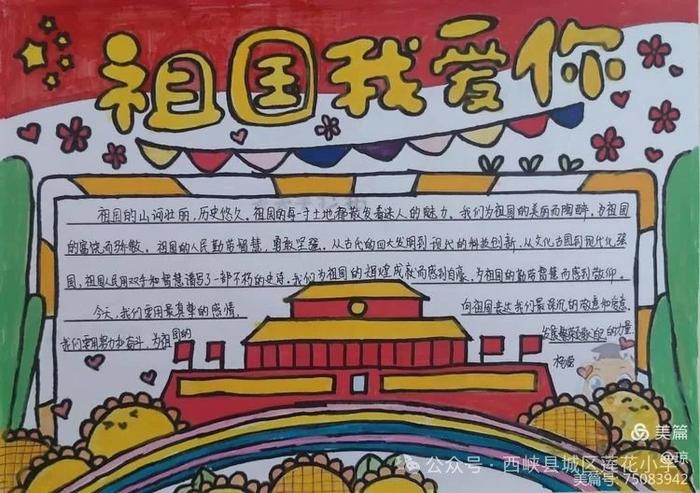 祖国我爱你
祖国的山河壮丽，历史悠久。祖国的每一寸土地都散发着迷人的魅力。我们为祖国的美丽而陶醉，为祖国
的富饶而骄傲。祖国的人民勤劳智慧，勇敢坚强。从古代的四大发明到现代的科技创新，从文化古国到现代化强
国，祖国人民用双手和智慧谱写了一部不朽的史诗。我们为祖国的辉煌成就而感到自豪，为祖国的勤劳智慧而感到敬仰。
今天，我们要用最真挚的感情，
向祖国表达我们最深沉的敬意和爱意。
我们要用努力和奋斗，为祖国的
发展繁荣贡献的力量
美篇
公众号·西峡县城区莲花小学
美篇号：75083942